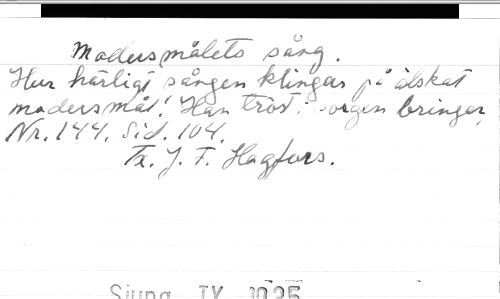 Modersmålets sång.
Hur härligt sången klingar på älskat
modersmål! Han tröst i sorgen bringar,
Nr. 144. Sid. 104.
Tx. J. F. Hagfors.
Sjung IX 1935